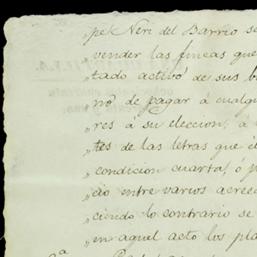 pe Neri del Barrio se
vender las fincas que
„tado activo de sus b
„no de pagar á cualqu
„res á su eleccion; á
„tes de las letras que é
„condicion cuarta) ó p
„cio entre varios acree
„ciendo lo contrario se
„en aquel acto los pla